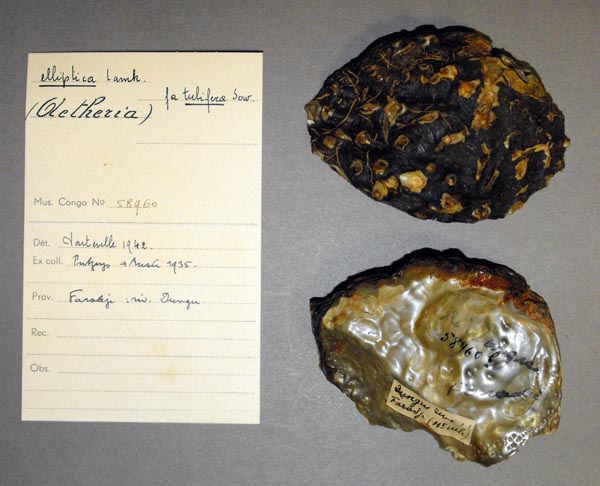 elliptica Lamk.
fa tubifera Sow.
(Aetheria)
Mus. Congo No 58960
Dét. Dartevelle 1942.
Ex coll. Putzeys 1935.
Prov. Faradje : riv. Dungu.
Rec.
Obs.
58960
Dungu
Faradje